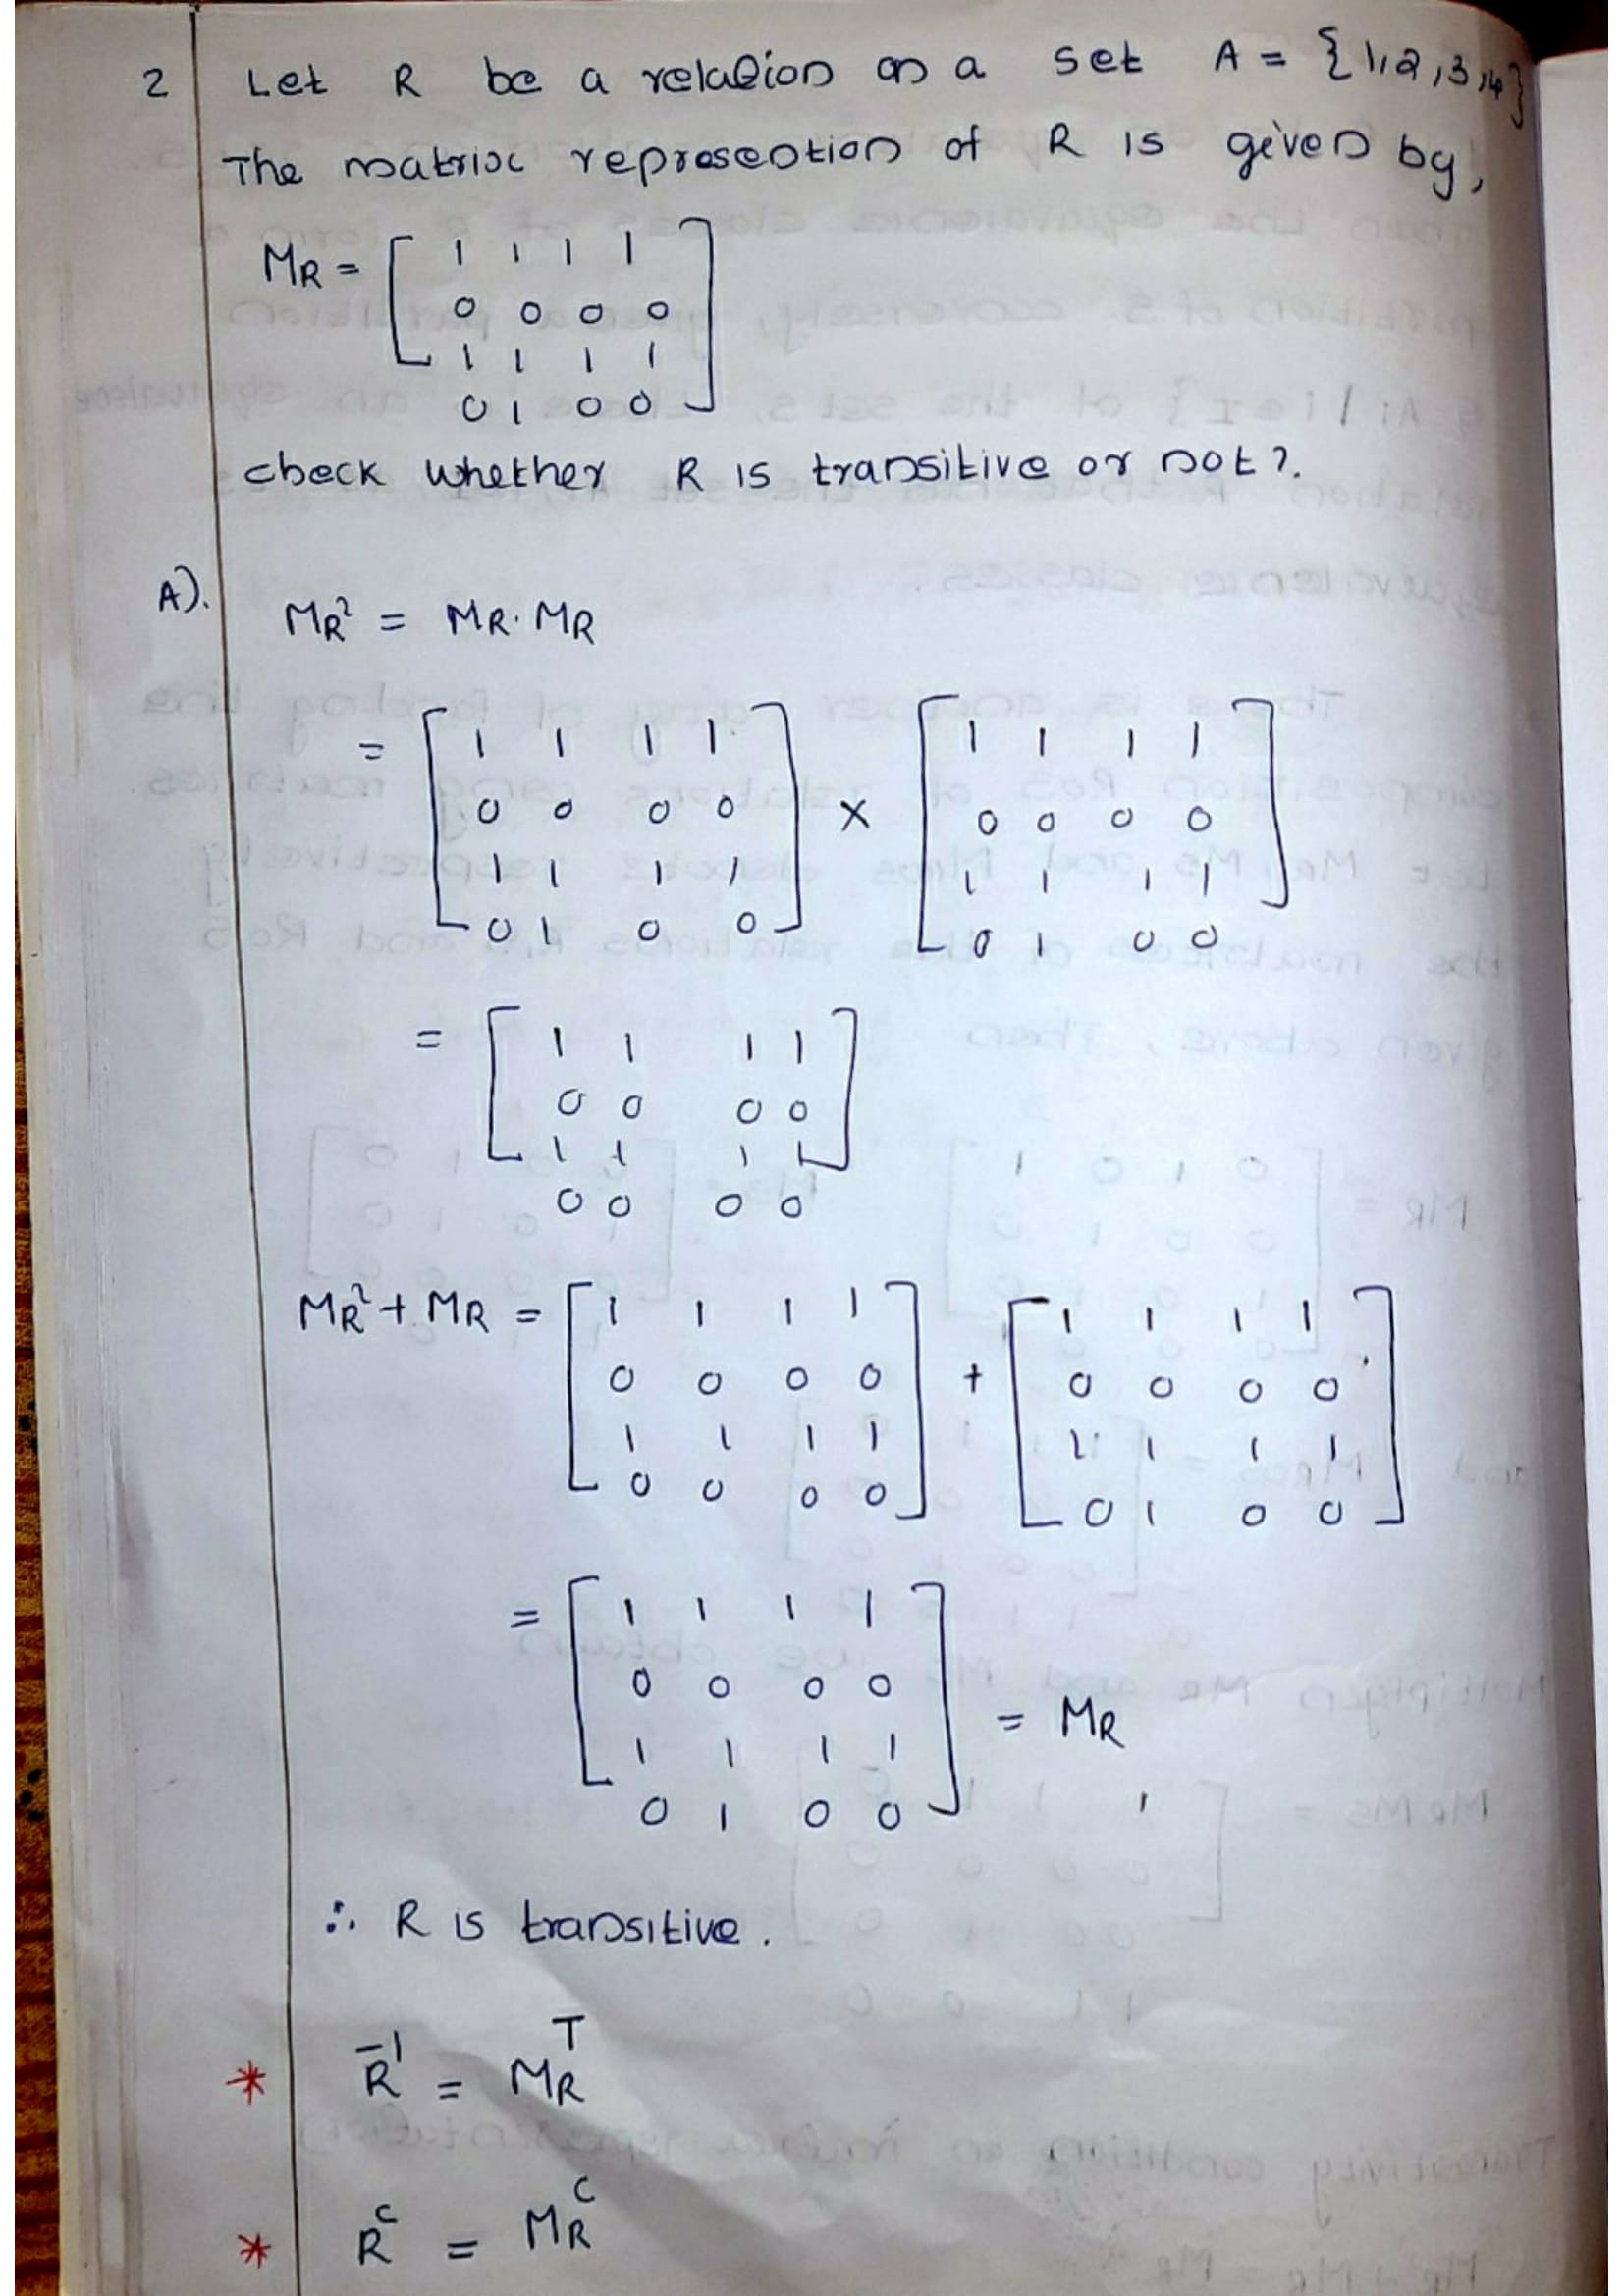 2 Let R be a relation on a set A = {1,2,3,4}
The matrix represention of R is given by,
MR = [ 1 1 1 1
0 0 0 0
1 1 1 1
0 1 0 0 ]
check whether R is transitive or not?.
A). MR² = MR. MR
= [ 1 1 1 1 ] × [ 1 1 1 1 ]
0 0 0 0 0 0 0 0
1 1 1 1 1 1 1 1
0 1 0 0 0 1 0 0
= [ 1 1 1 1 ]
0 0 0 0
1 1 1 1
0 0 0 0
MR² + MR = [ 1 1 1 1 ] + [ 1 1 1 1 ]
0 0 0 0 0 0 0 0
1 1 1 1 1 1 1 1
0 0 0 0 0 1 0 0
= [ 1 1 1 1 ] = MR
0 0 0 0
1 1 1 1
0 1 0 0
∴ R is transitive.
* R⁻¹ = MR^T
* R^C = MR^C